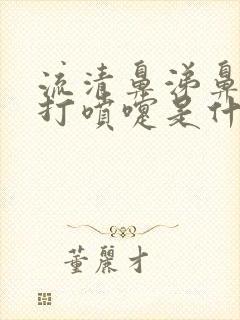 流清鼻涕鼻
打喷嚏是什
董麗才